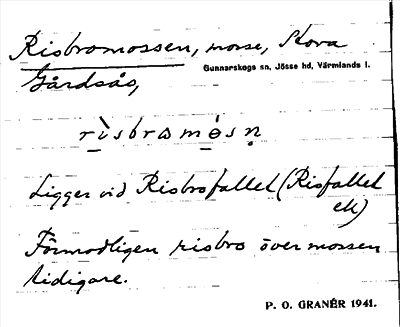 Risbromossen, mosse, Stora
Gunnarskogs sn, Jösse hd, Värmlands l.
Gårdsås,
rìsbramósn
Ligger vid Risbrofallet (Risfallet
ek)
Förmodligen risbro över mossen
tidigare.
P. O. GRANÉR 1941.